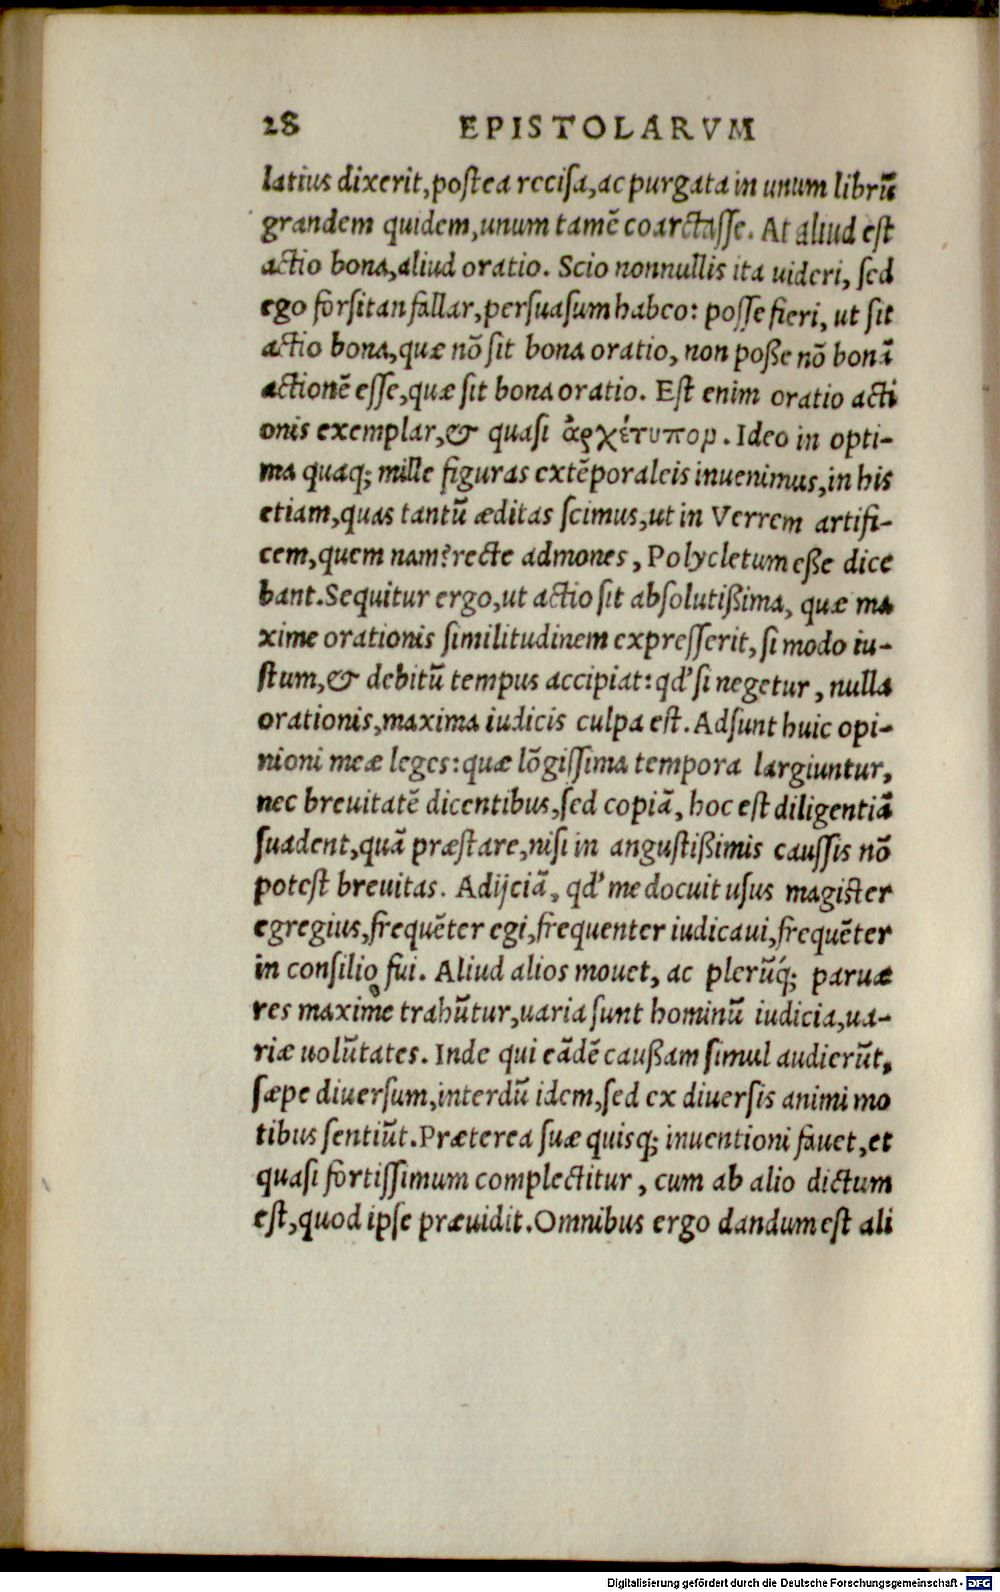 28 EPISTOLARVM
latius dixerit, postea recisa, ac purgata in unum librũ
grandem quidem, unum tamẽ coarctasse. At aliud est
actio bona, aliud oratio. Scio nonnullis ita uideri, sed
ego forsitan fallar, persuasum habeo: posse fieri, ut sit
actio bona, quæ nõ sit bona oratio, non posse nõ bonã
actionẽ esse, quæ sit bona oratio. Est enim oratio acti
onis exemplar, & quasi ἀρχέτυπον. Ideo in opti-
ma quaq; mille figuras extẽporaleis inuenimus, in his
etiam, quas tantũ æditas scimus, ut in Verrem artifi-
cem, quem nam? recte admones, Polycletum esse dice
bant. Sequitur ergo, ut actio sit absolutissima, quæ ma
xime orationis similitudinem expresserit, si modo iu-
stum, & debitũ tempus accipiat: qd' si negetur, nulla
orationis, maxima iudicis culpa est. Adsunt huic opi-
nioni meæ leges: quæ lõgissima tempora largiuntur,
nec breuitatẽ dicentibus, sed copiã, hoc est diligentiã
suadent, quã præstare, nisi in angustissimis caussis nõ
potest breuitas. Adijciã, qd' me docuit usus magister
egregius, frequẽter egi, frequenter iudicaui, frequẽter
in consilio fui. Aliud alios mouet, ac plerũq́; paruæ
res maxime trahũtur, uaria sunt hominũ iudicia, ua-
riæ uolũtates. Inde qui eãdẽ caussam simul audierũt,
sæpe diuersum, interdũ idem, sed ex diuersis animi mo
tibus sentiũt. Præterea suæ quisq; inuentioni fauet, et
quasi fortissimum complectitur, cum ab alio dictum
est, quod ipse præuidit. Omnibus ergo dandum est ali
Digitalisierung gefördert durch die Deutsche Forschungsgemeinschaft - DFG